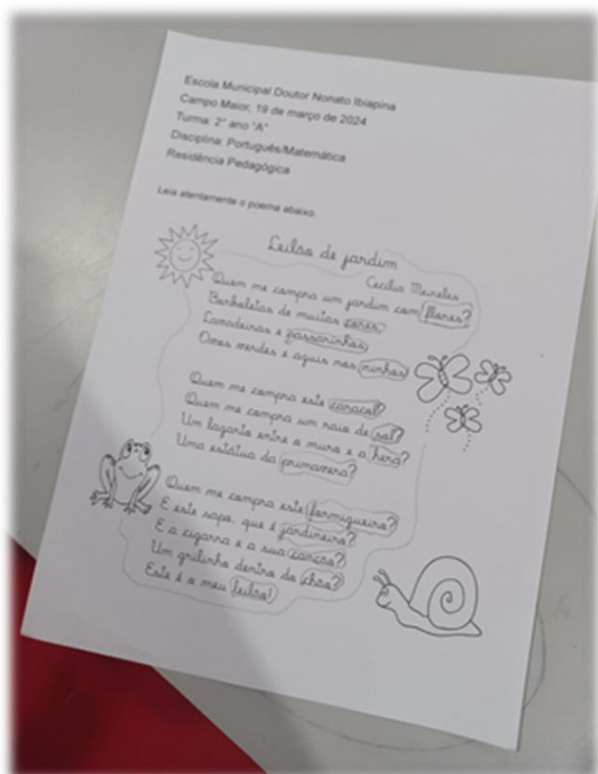 Escola Municipal Doutor Nonato Ibiapina
Campo Maior, 19 de março de 2024
Turma: 2° ano "A"
Disciplina: Português/Matemática
Residência Pedagógica
Leia atentamente o poema abaixo.
Leilão de jardim
Cecília Meireles
Quem me compra um jardim com flores?
Borboletas de muitas cores,
Lavadeiras e passarinhos,
Ovos verdes e azuis nos ninhos?
Quem me compra este caracol?
Quem me compra um raio de sol?
Um lagarto entre o muro e a hera?
Uma estátua da primavera?
Quem me compra este formigueiro?
E este sapo, que é jardineiro?
E a cigarra e a sua canção?
Um grilinho dentro do chão?
Este é o meu leilão!